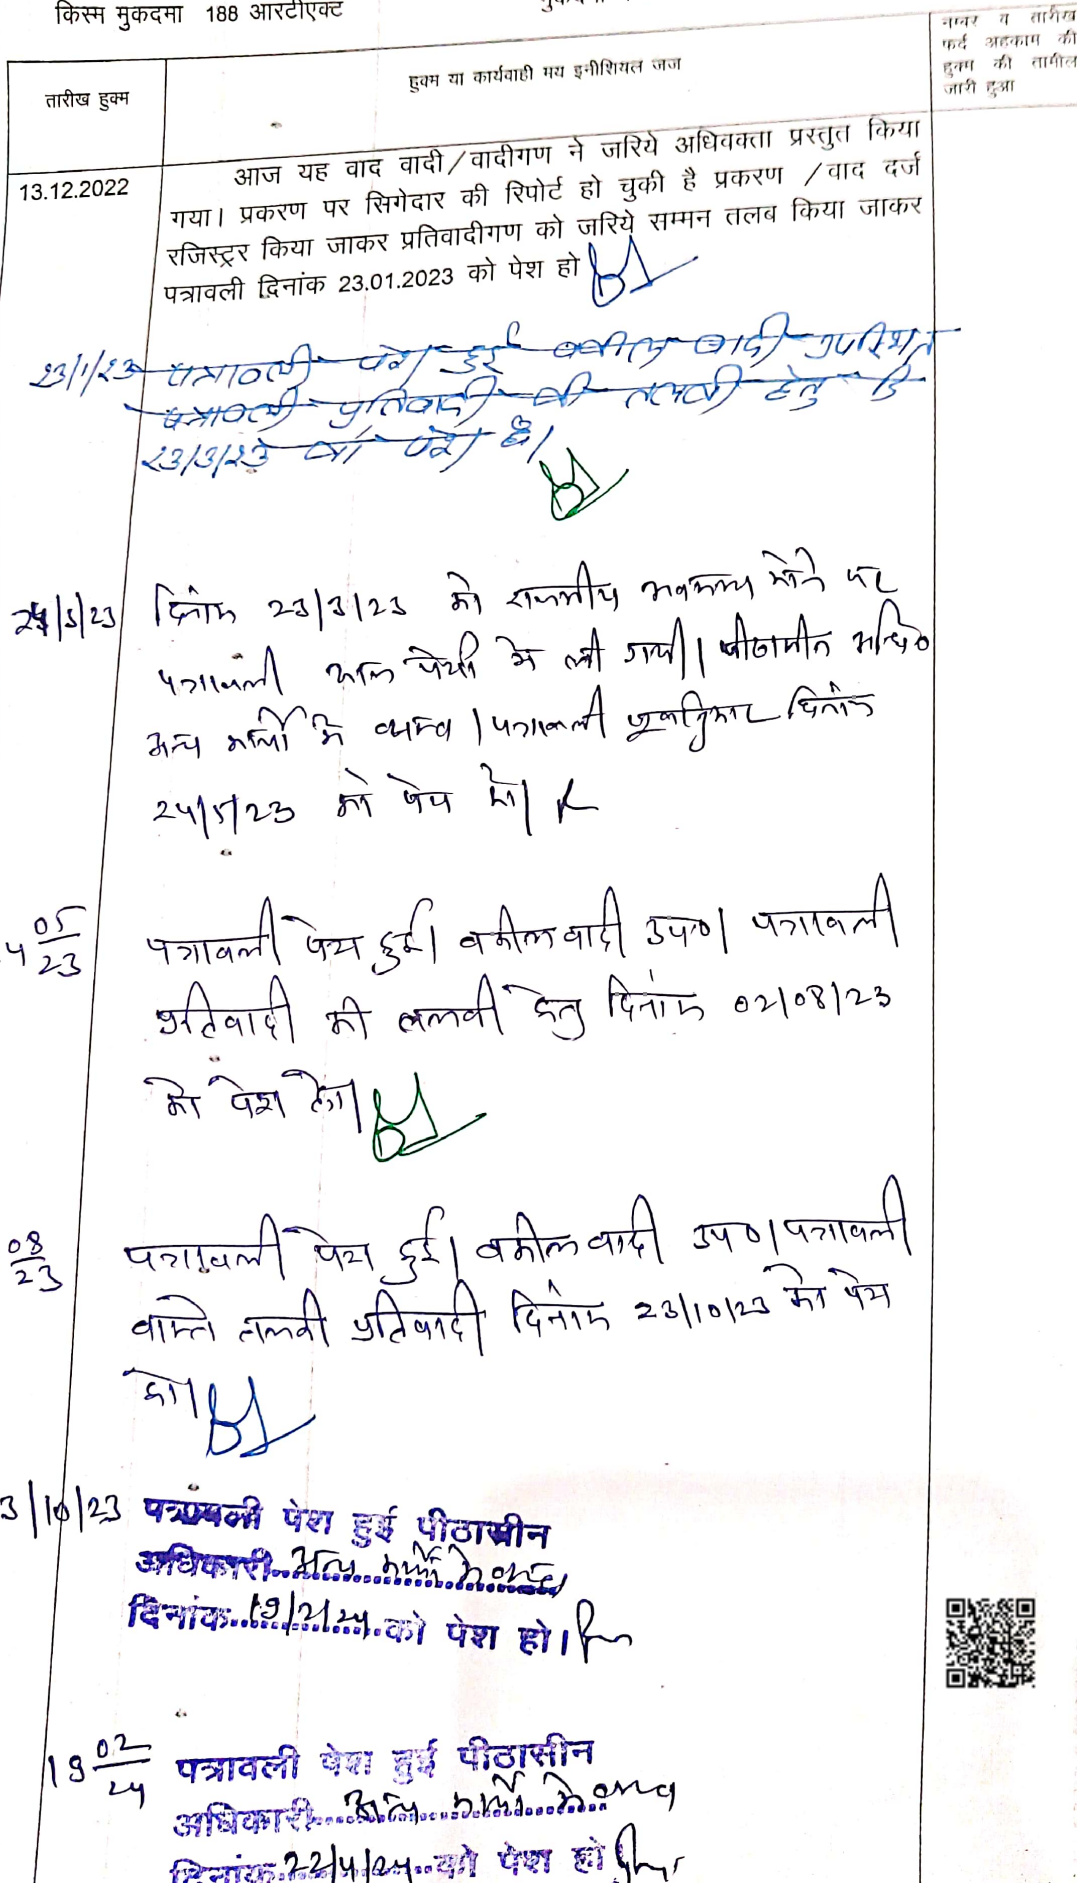 किस्म मुकदमा 188 आरटीएक्ट
नम्बर व तारीख
फर्द अहकाम की
हुक्म की तामील
जारी हुआ
तारीख हुक्म
हुक्म या कार्यवाही मय इनीशियल जज
13.12.2022
आज यह वाद वादी/वादीगण ने जरिये अधिवक्ता प्रस्तुत किया
गया। प्रकरण पर सिगेदार की रिपोर्ट हो चुकी है प्रकरण /वाद दर्ज
रजिस्ट्रर किया जाकर प्रतिवादीगण को जरिये सम्मन तलब किया जाकर
पत्रावली दिनांक 23.01.2023 को पेश हो
23/1/23 पत्रावली पेश हुई वकील वादी उपस्थित
पत्रावली प्रतिवादी की तलबी हेतु दि
23/3/23 को पेश हो।
24/3/23 दिनांक 23/3/23 को राजकीय अवकाश होने पर
पत्रावली आज पेशी में ली गयी। पीठासीन अधि०
अन्य कार्यो में व्यस्त। पत्रावली पूर्वानुसार दिनांक
24/5/23 को पेश हो।
4 05/23 पत्रावली पेश हुई। वकील वादी उप०। पत्रावली
प्रतिवादी की तलबी हेतु दिनांक 02/08/23
को पेश हो।
08/23 पत्रावली पेश हुई। वकील वादी उप०। पत्रावली
वास्ते तलबी प्रतिवादी दिनांक 23/10/23 को पेश
हो।
3/10/23 पत्रावली पेश हुई पीठासीन
अधिकारी अन्य कार्यो में व्यस्त
दिनांक 19/2/24 को पेश हो।
19 02/24 पत्रावली पेश हुई पीठासीन
अधिकारी अन्य कार्यो में व्यस्त
दिनांक 22/4/24 को पेश हो